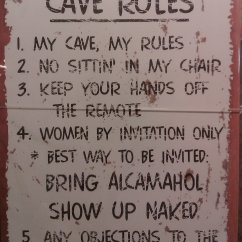 CAVE RULES
1. MY CAVE, MY RULES
2. NO SITTIN' IN MY CHAIR
3. KEEP YOUR HANDS OFF
THE REMOTE
4. WOMEN BY INVITATION ONLY
* BEST WAY TO BE INVITED:
BRING ALCAMAHOL
SHOW UP NAKED
5. ANY OBJECTIONS TO THE